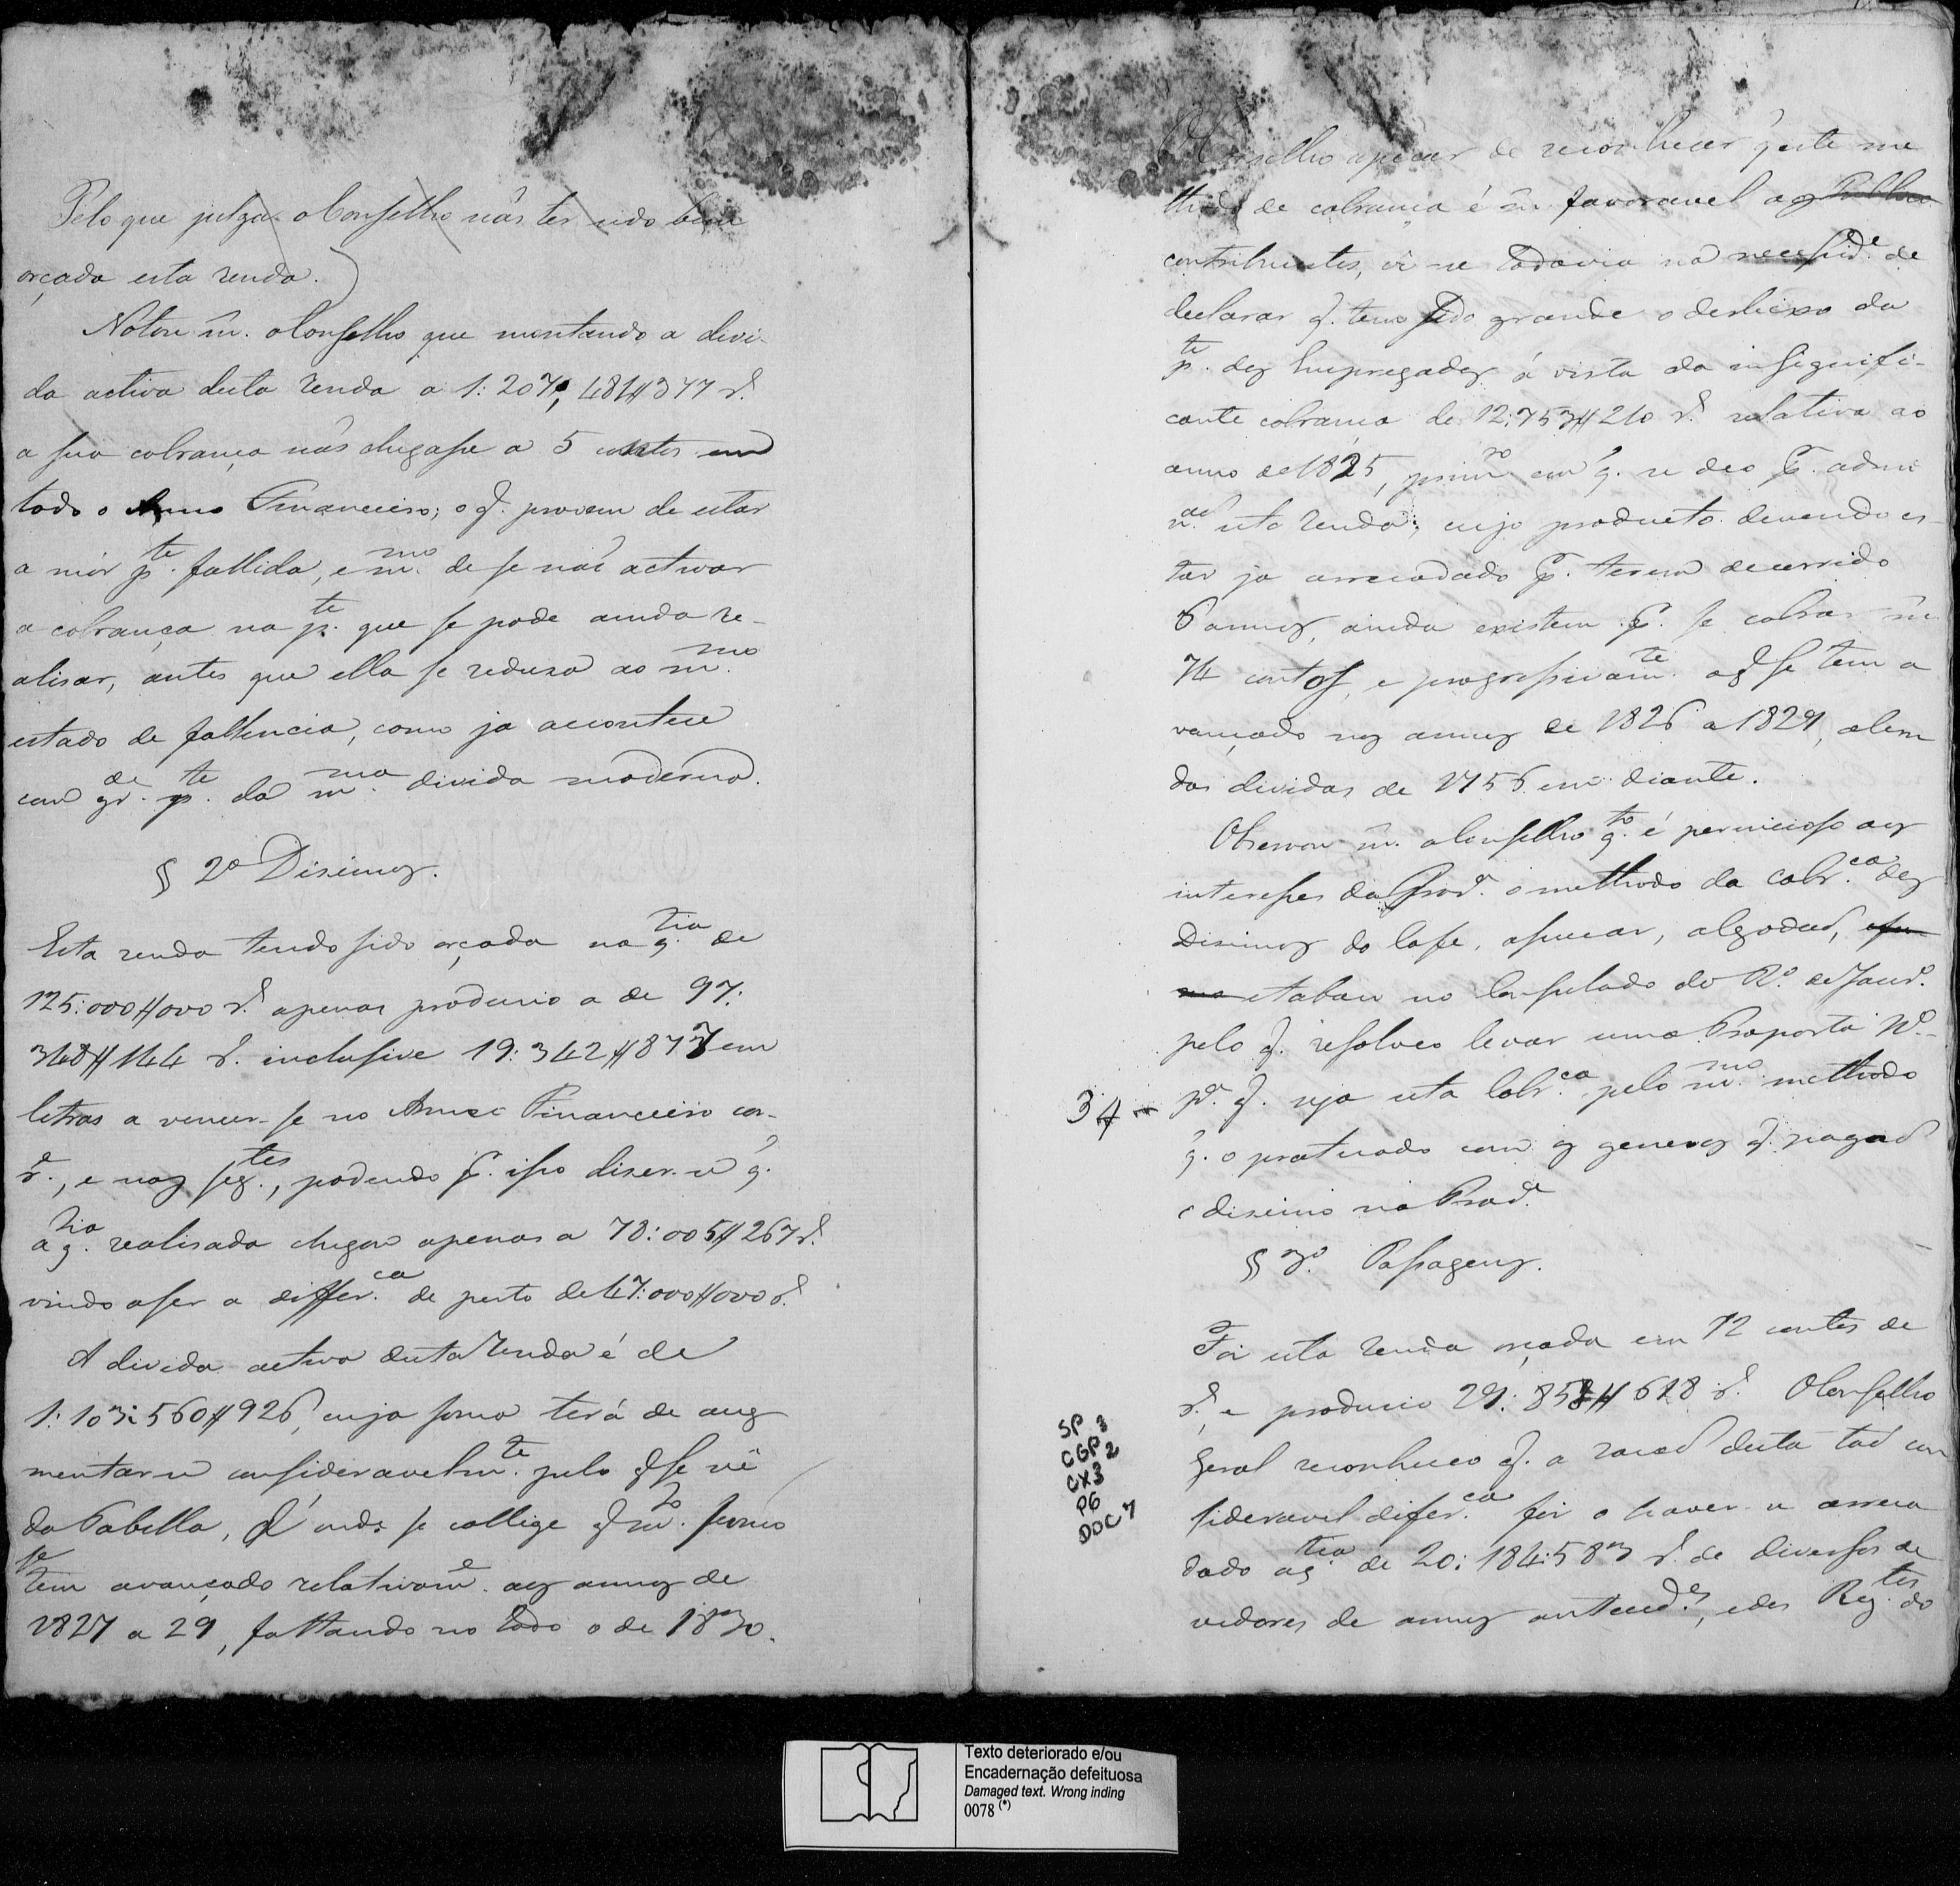 Pelo que julga o Conselho não ter sido bem
orçada esta renda.
Notou m. o Conselho que montando a divi-
da activa desta renda a 1:207,481$377 r.
a sua cobrança não chegasse a 5 contos em
todo o Anno Financeiro; o q. provem de estar
a mór p.te fallida, e m.mo de se não activar
a cobrança na p.te que se pode ainda re-
alisar, antes que ella se redusa ao m.mo
estado de fallencia, como ja acontece
com gr.de p.te da m.ma divida moderna.
§ 2º Disimos.
Esta renda tendo sido orçada na q.tia de
125:000$000 r. apenas produsio a de 97:
348$144 r. inclusive 19:342$877 em
letras a vencer-se no Anno Financeiro cor-
r.e, e nos seg.tes, podendo p. isso diser-se q.
a q.tia realisada chegou apenas a 78:005$267 r.
vindo a ser a differ.ca de perto de 47:000$000 r.
A divida activa desta renda é de
1:103:560$926, cuja soma terá de aug
mentar-se consideravelm.te pelo q se vê
da Tabella, d'onde se collige q m.to pouco
se tem avançado relativam.e aos annos de
1827 a 29, faltando no todo o de 1830.
Conselho apesar de reconhecer q este me
thodo de cobrança é m. favoravel aos
contribuintes, vê-se todavia na necessid.e de
declarar q. tem sido grande o desleixo da
p.te dos Empregados á vista da insignifi-
cante cobrança de 12:753$210 r. relativa ao
anno de 1825, prim.ro em q. se deo p. admi
n.ão esta renda; cujo producto devendo es-
tar ja arrecadado p. terem decorrido
6 annos, ainda existem p. se cobrar m.
74 contos, e progressivam.te o q se tem a
vançado nos annos de 1826 a 1829, alem
das dividas de 1756 em diante.
Observou m. o Conselho q.to é pernicioso aos
interesses da Prov.a o methodo da cobr.ca dos
Disimos do Cafe, assucar, algodão,
e tabaco no Consulado do R.º de Jan.º
pelo q. resolveo levar uma Proposta Nº
34 - p.a q. seja esta Cobr.ca pelo m.mo methodo
q. o praticado com os generos q. pagão
o disimo na Prov.a
§ 3º Passagens.
Foi esta renda orçada em 12 contos de
r., e produsio 29:858$628 r. O Conselho
Geral reconheceo q. a rasão desta tão con
sideravel difer.ca foi o haver-se arreca
dado a q.tia de 20:184:583 r. de diversos de
vedores de annos anteced.es, e dos Reg.tos do
SP 3
CGP 2
CX3
P6
DOC 7
Texto deteriorado e/ou
Encadernação defeituosa
Damaged text. Wrong inding
0078 (*)